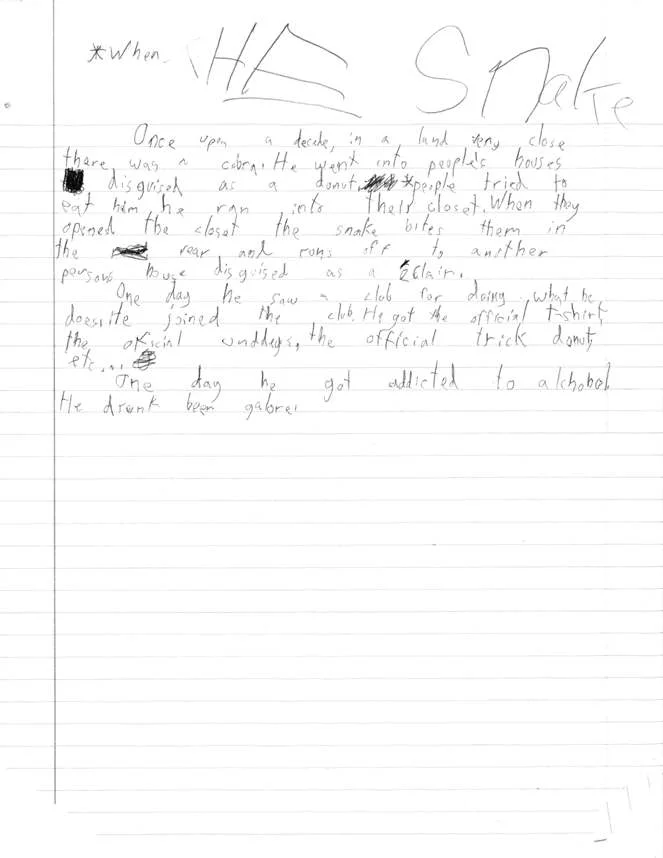 *When THE SnaKe
Once upon a decide, in a land very close
there was a cobra. He went into people's houses
disguised as a donut. *people tried to
eat him he ran into their closet. When they
opened the closet the snake bites them in
the rear and runs off to another
persons house disguised as a éClair.
One day he saw a club for doing what he
does. He joined the club. He got the official t-shirt,
the official unddegs, the official trick donut,
etc...
One day he got addicted to alchohol.
He drunk been galore.